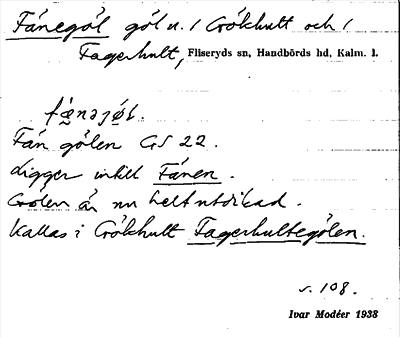 Fánegöl göl n. i Gökhult och i
Fagerhult, Fliseryds sn, Handbörds hd, Kalm. l.
Fån gölen GS 22.
Ligger intill Fånen.
Gölen är nu helt utdikad.
Kallas i Gökhult Fagerhultegölen.
s. 108.
Ivar Modéer 1938